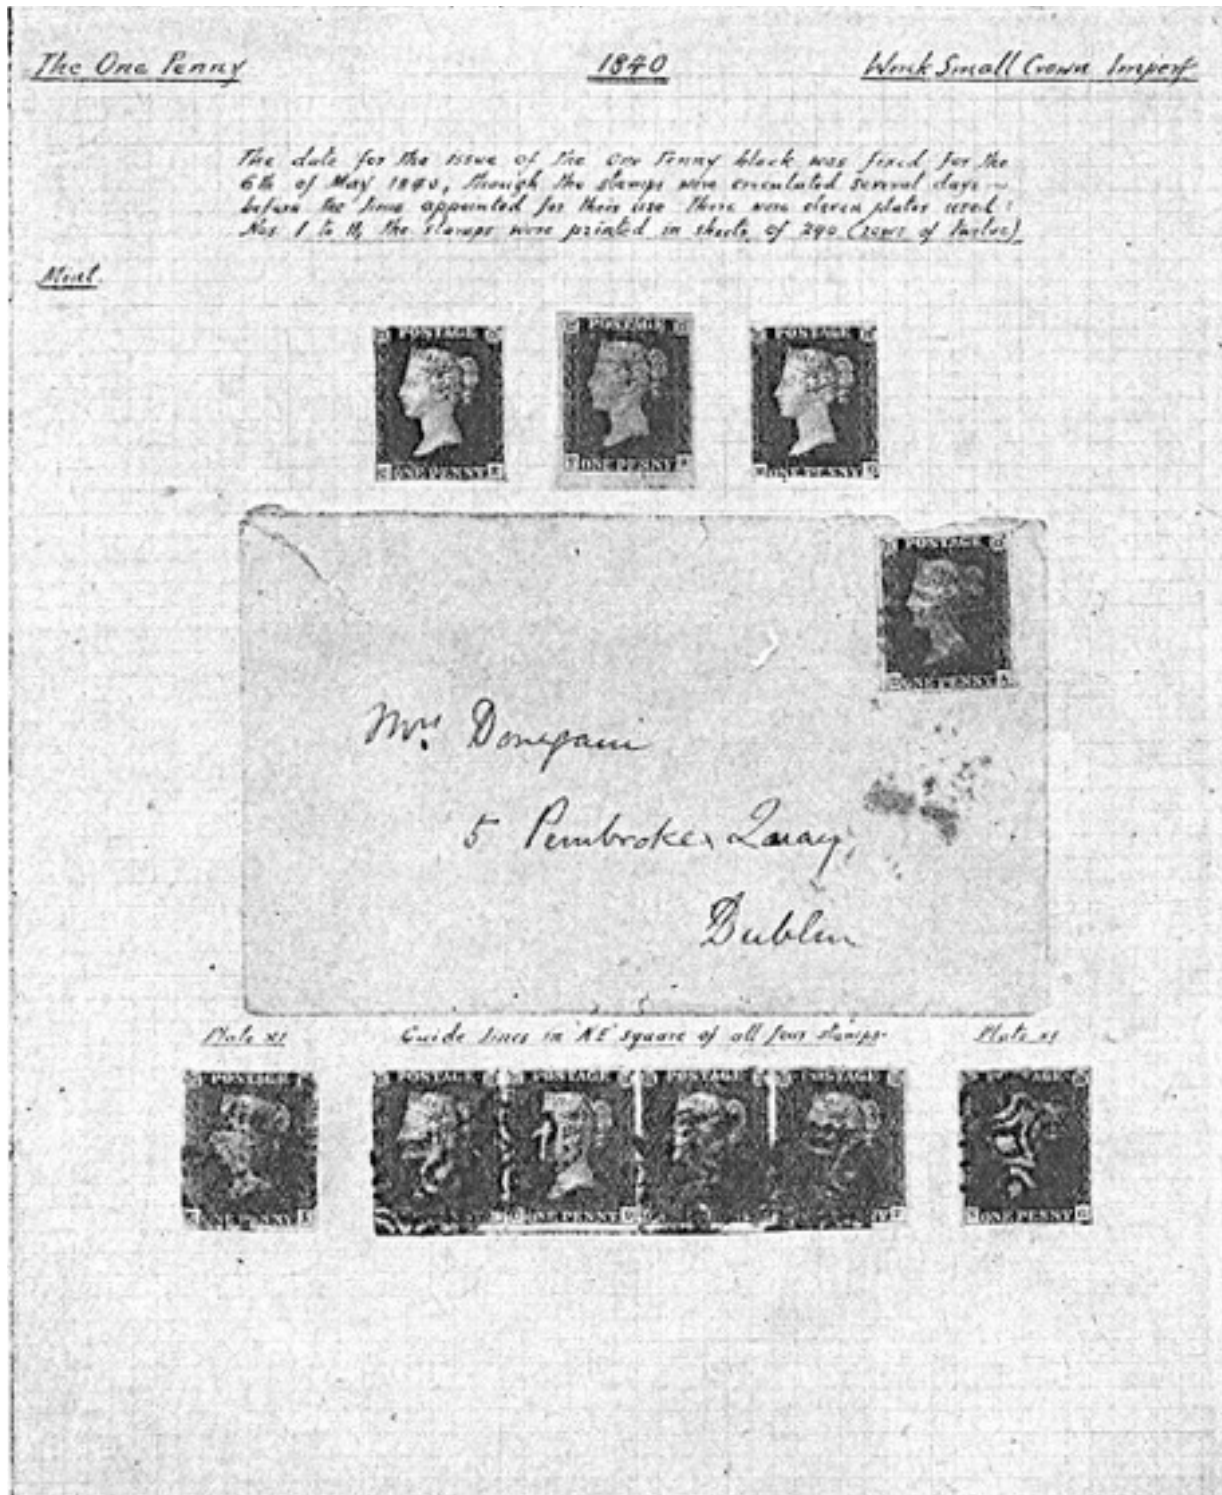 The One Penny 1840 Wmk Small Crown Imperf
The date for the issue of the One Penny black was fixed for the
6th of May 1840, though the stamps were circulated several days
before the time appointed for their use. There were eleven plates used:
Nos 1 to 11, the stamps were printed in sheets of 240 (rows of twelve)
Mint.
POSTAGE POSTAGE POSTAGE
ONE PENNY ONE PENNY ONE PENNY
POSTAGE
ONE PENNY
Mrs. Donegani
5 Pembroke Quay,
Dublin
Plate XI Guide lines in NE square of all four stamps. Plate XI
POSTAGE POSTAGE POSTAGE POSTAGE POSTAGE
ONE PENNY ONE PENNY ONE PENNY